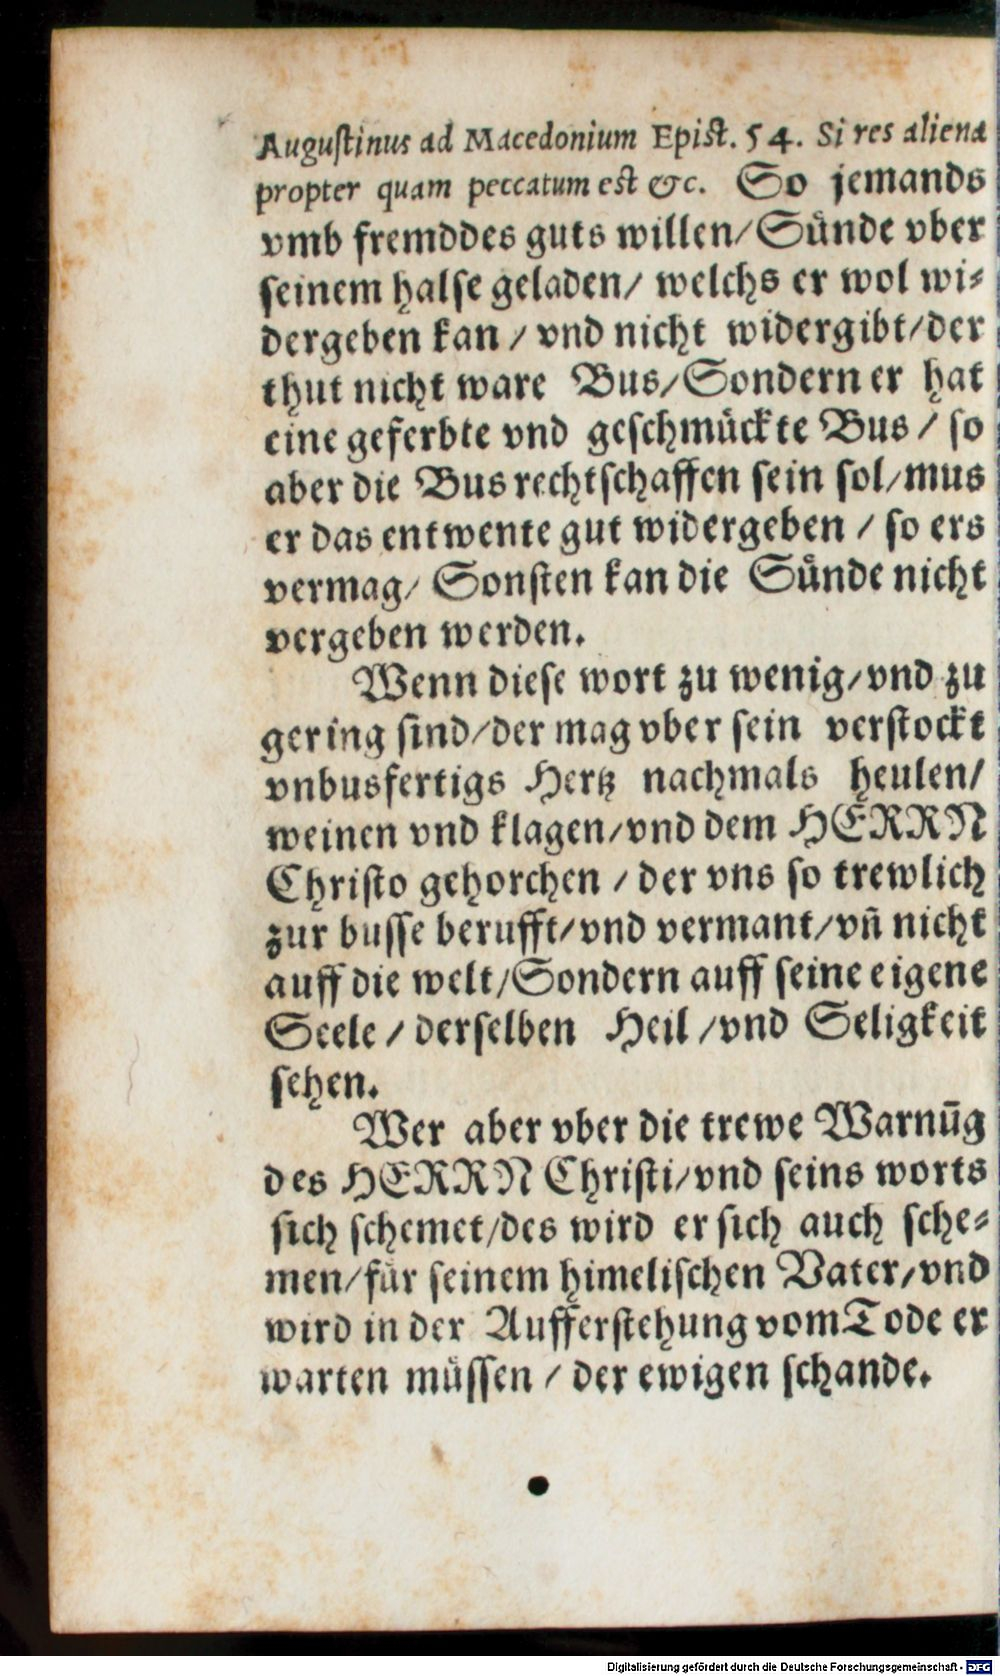 Augustinus ad Macedonium Epist. 54. Si res aliena
propter quam peccatum est &c. So jemands
vmb fremddes guts willen/ Sünde vber
seinem halse geladen/ welchs er wol wi⸗
dergeben kan / vnd nicht widergibt/ der
thut nicht ware Bus/ Sondern er hat
eine geferbte vnd geschmückte Bus / so
aber die Bus rechtschaffen sein sol/ mus
er das entwente gut widergeben / so ers
vermag/ Sonsten kan die Sünde nicht
vergeben werden.
Wenn diese wort zu wenig/ vnd zu
gering sind/ der mag vber sein verstockt
vnbusfertigs Hertz nachmals heulen/
weinen vnd klagen/ vnd dem HERRN
Christo gehorchen / der vns so trewlich
zur busse berufft/ vnd vermant/ vñ nicht
auff die welt/ Sondern auff seine eigene
Seele / derselben Heil / vnd Seligkeit
sehen.
Wer aber vber die trewe Warnūg
des HERRN Christi/ vnd seins worts
sich schemet/ des wird er sich auch sche⸗
men/ für seinem himelischen Vater/ vnd
wird in der Aufferstehung vom Tode er
warten müssen / der ewigen schande.
Digitalisierung gefördert durch die Deutsche Forschungsgemeinschaft - DFG